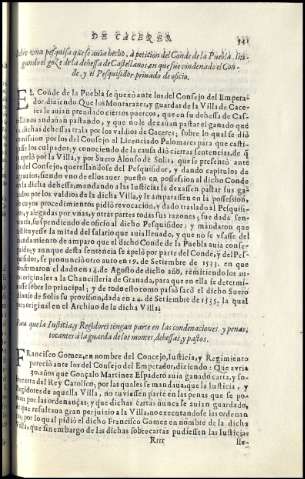 DE CACERES
341
Sobre una pesquisa que se auia hecho, à peticion del Conde de la Puebla, lra-
gando el goze de la dehessa de Castellanos: en que fue condenado el Con-
de, y el Pesquisidor, priuado de oficio.
EL Conde de la Puebla se quexò ante los del Consejo del Empera-
dor diziendo Que los Montarazes, y guardas de la Villa de Cace-
res auian prendado ciertos pastores, que en su dehessa de Cas-
llanos andauan pastando, y que no le dexauan pastar el ganado que
en dichas dehessas traia por los valdios de Caceres; sobre lo qual se diò
comission por los del Consejo al Licenciado Palomares para que casti-
gasse los culpados, y conociendo de la causa diò ciertas sentencias, de q̃
se apelò por la Villa, y por Suero Alonso de Solis, que se presentò ante
los del Consejo, querellandose del Pesquisidor, y dando capitulos de
passion, siendo vno de ellos auer puesto en possession al dicho Conde
en la dicha dehessa, mandando a las Iusticias le dexassen pastar sus ga-
nados por los valdios de la dicha Villa, y le amparassen en la possession,
de cuyos procedimientos pidiò revocaciòn, y dado traslado al Pesquisi-
dor, y alegadas por vnas, y otras partes todas sus razones, fue dada senten-
cia, suspendiendo de oficio al dicho Pesquisidor; y mandaron que
restituyesse la mitad del salario que auia lleuado, y que no se vsasse del
mandamiento de amparo que el dicho Conde de la Puebla auia conse-
guido; y aunque desta sentencia se apelò por parte del Conde, y del Pes-
quisidor, se pronunciò otro auto en 19. de Setiembre de 1533. en que
confirmaron el dado en 14. de Agosto de dicho año, remitiendo los au-
tos originales a la Chancilleria de Granada, para que en ella se determi-
nasse sobre lo principal; y de todo ello como passò sacò el dicho Suero
Alonso de Solis su prouision, dada en 24. de Setiembre de 1535. la qual
està original en el Archiuo de la dicha Villa.
Para que la Iusticia, y Regidores tengan parte en las condenaciones, y penas,
tocantes à la guarda de los montes, dehessas, y pastos.
FRancisco Gomez, en nombre del Concejo, Iusticia, y Regimiento
pareciò ante los del Consejo del Emperador, diziendo: Que avria
20. años que Gonçalo Martinez Espadero auia ganado carta, y so-
brecarta del Rey Catolico, por las quales se mandaua, que la Iusticia, y
Regidores de aquella Villa, no tuviessen parte en las penas que se po-
nen por las ordenanças, y que dichas cartas nunca se auian guardado,
de que resultaua gran perjuizio a la Villa, no executandose las ordenan-
ças, por lo qual pidiò el dicho Francisco Gomez en nombre de la dicha
Villa, que sin embargo de las dichas sobrecartas pudiessen las Iusticias
Rrrr
lle-